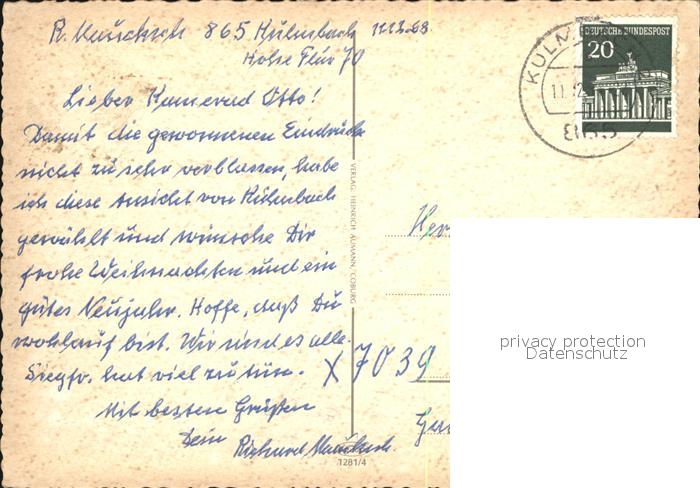 R. Mauksch 865 Kulmbach 11.12.68
Hohe Flur 70
Lieber Kamerad Otto!
Damit die gewonnenen Eindrücke
nicht zu sehr verblassen, habe
ich diese Ansicht von Kulmbach
gewählt und wünsche Dir
frohe Weihnachten und ein
gutes Neujahr. Hoffe, daß Du
wohlauf bist. Wir sind es alle.
Siegfr. hat viel zu tun.
Mit besten Grüßen
Dein Richard Mauksch.
VERLAG: HEINRICH AUMANN, COBURG
1281/4
DEUTSCHE BUNDESPOST
20
KULM
11.12
Her
X 7039
privacy protection
Datenschutz